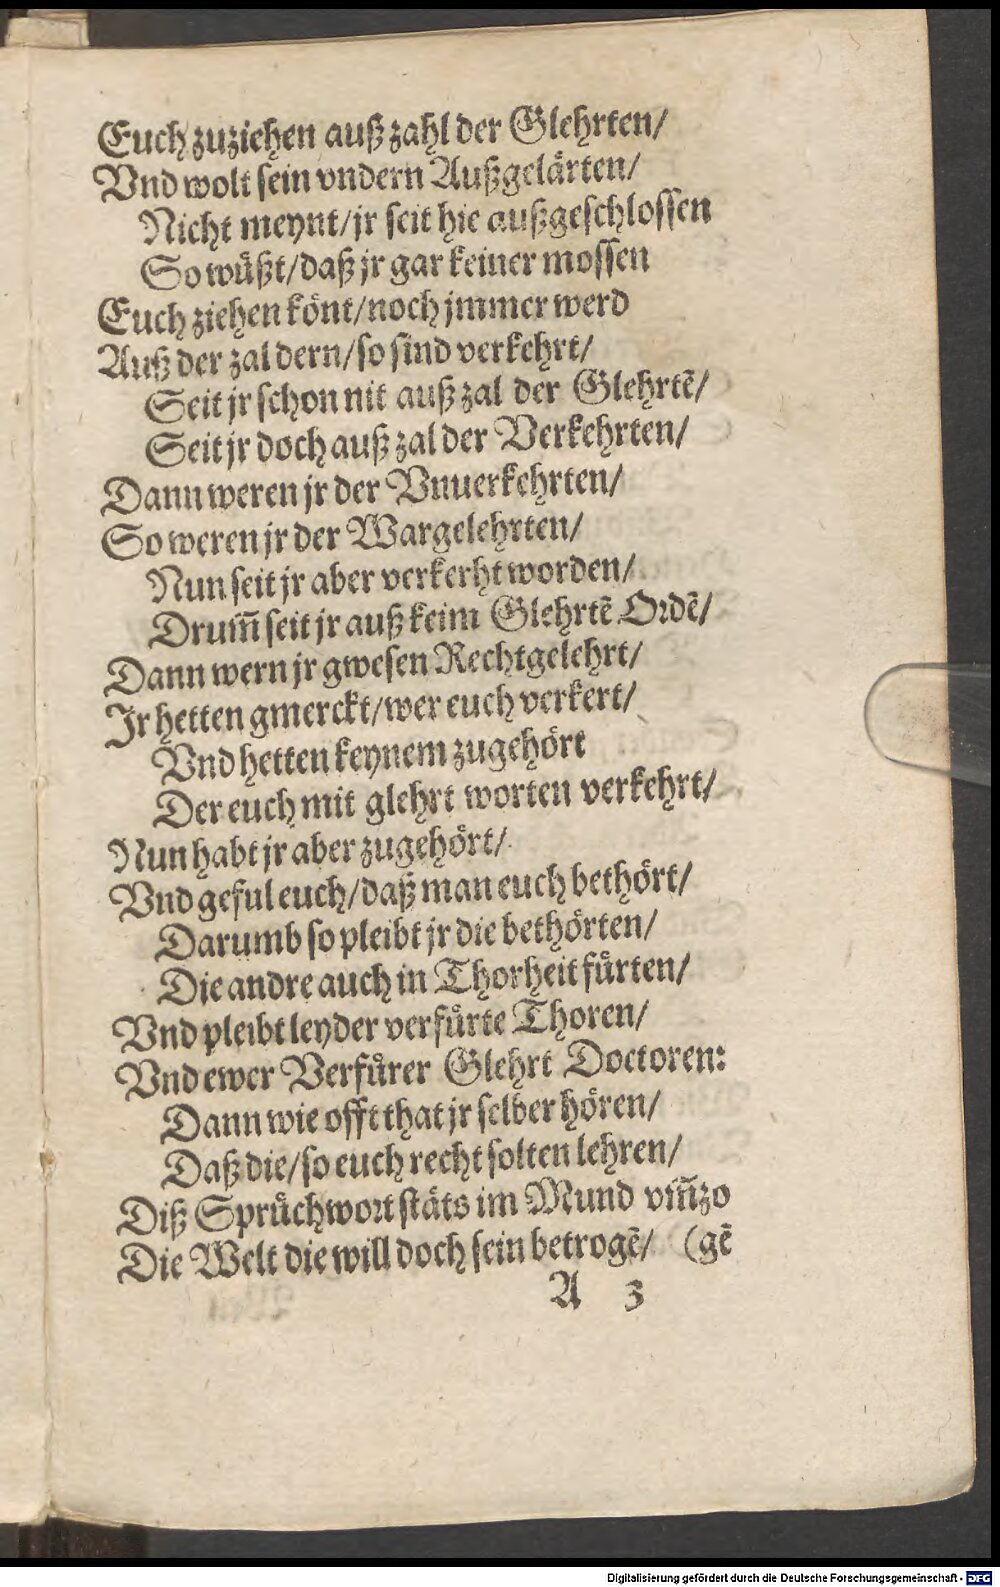 Euch zuziehen auß zahl der Glehrten/
Vnd wolt sein vndern Außgelärten/
Nicht meynt/jr seit hie außgeschlossen
So wüßt/daß jr gar keiner mossen
Euch ziehen könt/noch jmmer werd
Auß der zal dern/so sind verkehrt/
Seit jr schon nit auß zal der Glehrtẽ/
Seit jr doch auß zal der Verkehrten/
Dann weren jr der Vnuerkehrten/
So weren jr der Wargelehrten/
Nun seit jr aber verkerht worden/
Drum̃ seit jr auß keim Glehrtẽ Ordẽ/
Dann wern jr gwesen Rechtgelehrt/
Jr hetten gmerckt/wer euch verkert/
Vnd hetten keynem zugehört
Der euch mit glehrt worten verkehrt/
Nun habt jr aber zugehört/
Vnd geful euch/daß man euch bethört/
Darumb so pleibt jr die bethörten/
Die andre auch in Thorheit fürten/
Vnd pleibt leyder verfürte Thoren/
Vnd ewer Verfürer Glehrt Doctoren:
Dann wie offt that jr selber hören/
Daß die/so euch recht solten lehren/
Diß Sprüchwort stäts im Mund vm̃zo
Die Welt die will doch sein betrogẽ/ (gẽ
A 3
Digitalisierung gefördert durch die Deutsche Forschungsgemeinschaft - DFG